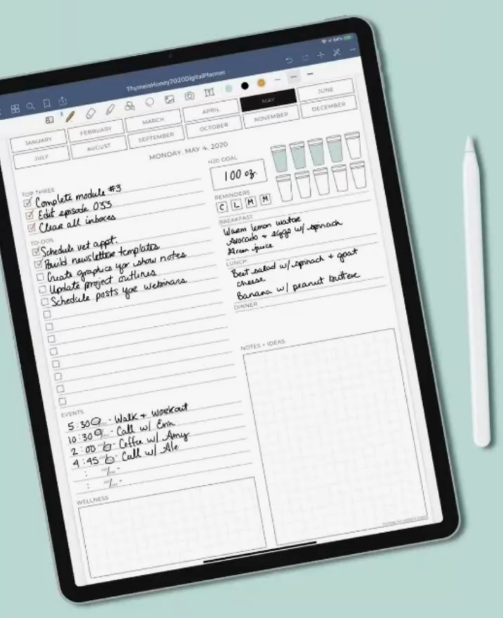 ThymeandHoney2020DigitalPlanner
JANUARY
FEBRUARY
MARCH
APRIL
MAY
JUNE
JULY
AUGUST
SEPTEMBER
OCTOBER
NOVEMBER
DECEMBER
MONDAY, MAY 4, 2020
TOP THREE
Complete module #3
Edit episode 033
Clear all inboxes
TO-DOS
Schedule vet appt.
Build newsletter templates
Create graphics for show notes
Update project outlines
Schedule posts for webinars
EVENTS
5:30 a - Walk + workout
10:30 a - Call w/ Erin
2:00 p - Coffee w/ Amy
4:45 p - Call w/ Ale
WELLNESS
H2O GOAL
100 oz
REMINDERS
C L M M
BREAKFAST
Warm lemon water
Avocado + eggs w/ spinach
Green juice
LUNCH
Beet salad w/ spinach + goat
cheese
Banana w/ peanut butter
DINNER
NOTES + IDEAS